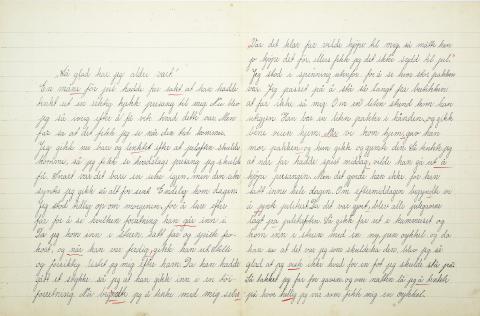 "Så glad har jeg aldri vært"
En måned før jul hadde far sakt at han hadde
tenkt ut en riktig kjekk presang til meg. Nu blev
jeg så ivrig efter å få vite hvad dette var. Men
far sa at det fikk jeg se når den tid kommer.
Jeg gikk nu bare og lengtet efter at julaften skulde
komme, så jeg fikk se hvadslags presang jeg skulde
få. Snart var det bare en uke igjen, men den uke
syntes jeg gikk så alt for sent. Endelig kom dagen
Jeg stod tidlig op om morgenen, for å lure efter
far for å se hvilken forretning han går inn i
Da jeg kom inn i stuen satt far og spiste fro-
kost, og når han var ferdig, gikk han ut. Stille
og forsiktig listet jeg mig efter ham. Da han hadde
gått et stykke så jeg at han gikk inn i en stor
forretning. Nu begynte jeg å tenke med meg selv:
"Var det klær far vilde kjøpe til mig så måtte han
jo kjøpe det før, ellers fikk jeg det ikke sydd til jul."
Jeg stod i spenning utenfor for å se hvor stor pakken
var. Jeg passet på å stå så langt fra butikken
at far ikke så mig. Om en liten stund kom han
utigjen. Han bar en liten pakke i hånden, og gikk
bene veien hjem. Når vi kom hjem, gav han
mor pakken og hun gikk og gjemte den. Så tenkte jeg
at når far hadde spist middag, vilde han gå ut å
kjøpe presangen. Men det gjorde han ikke for han
satt inne hele dagen. Om eftermiddagen begynte vi
å pynte juletret. Da det var gjort, blev alle julegavene
lagt på juletrefoten. Så gikk far ut i kammeret og
kom inn i stuen med en ny, pen sykkel, og da
han sa at det var jeg som skulde ha den, blev jeg så
glad at jeg visste ikke hvad for en fot jeg skulde stå på.
Så takket jeg far for gaven, og om natten lå jeg å tenkte
på hvor heldig jeg var som fikk mig en sykkel.